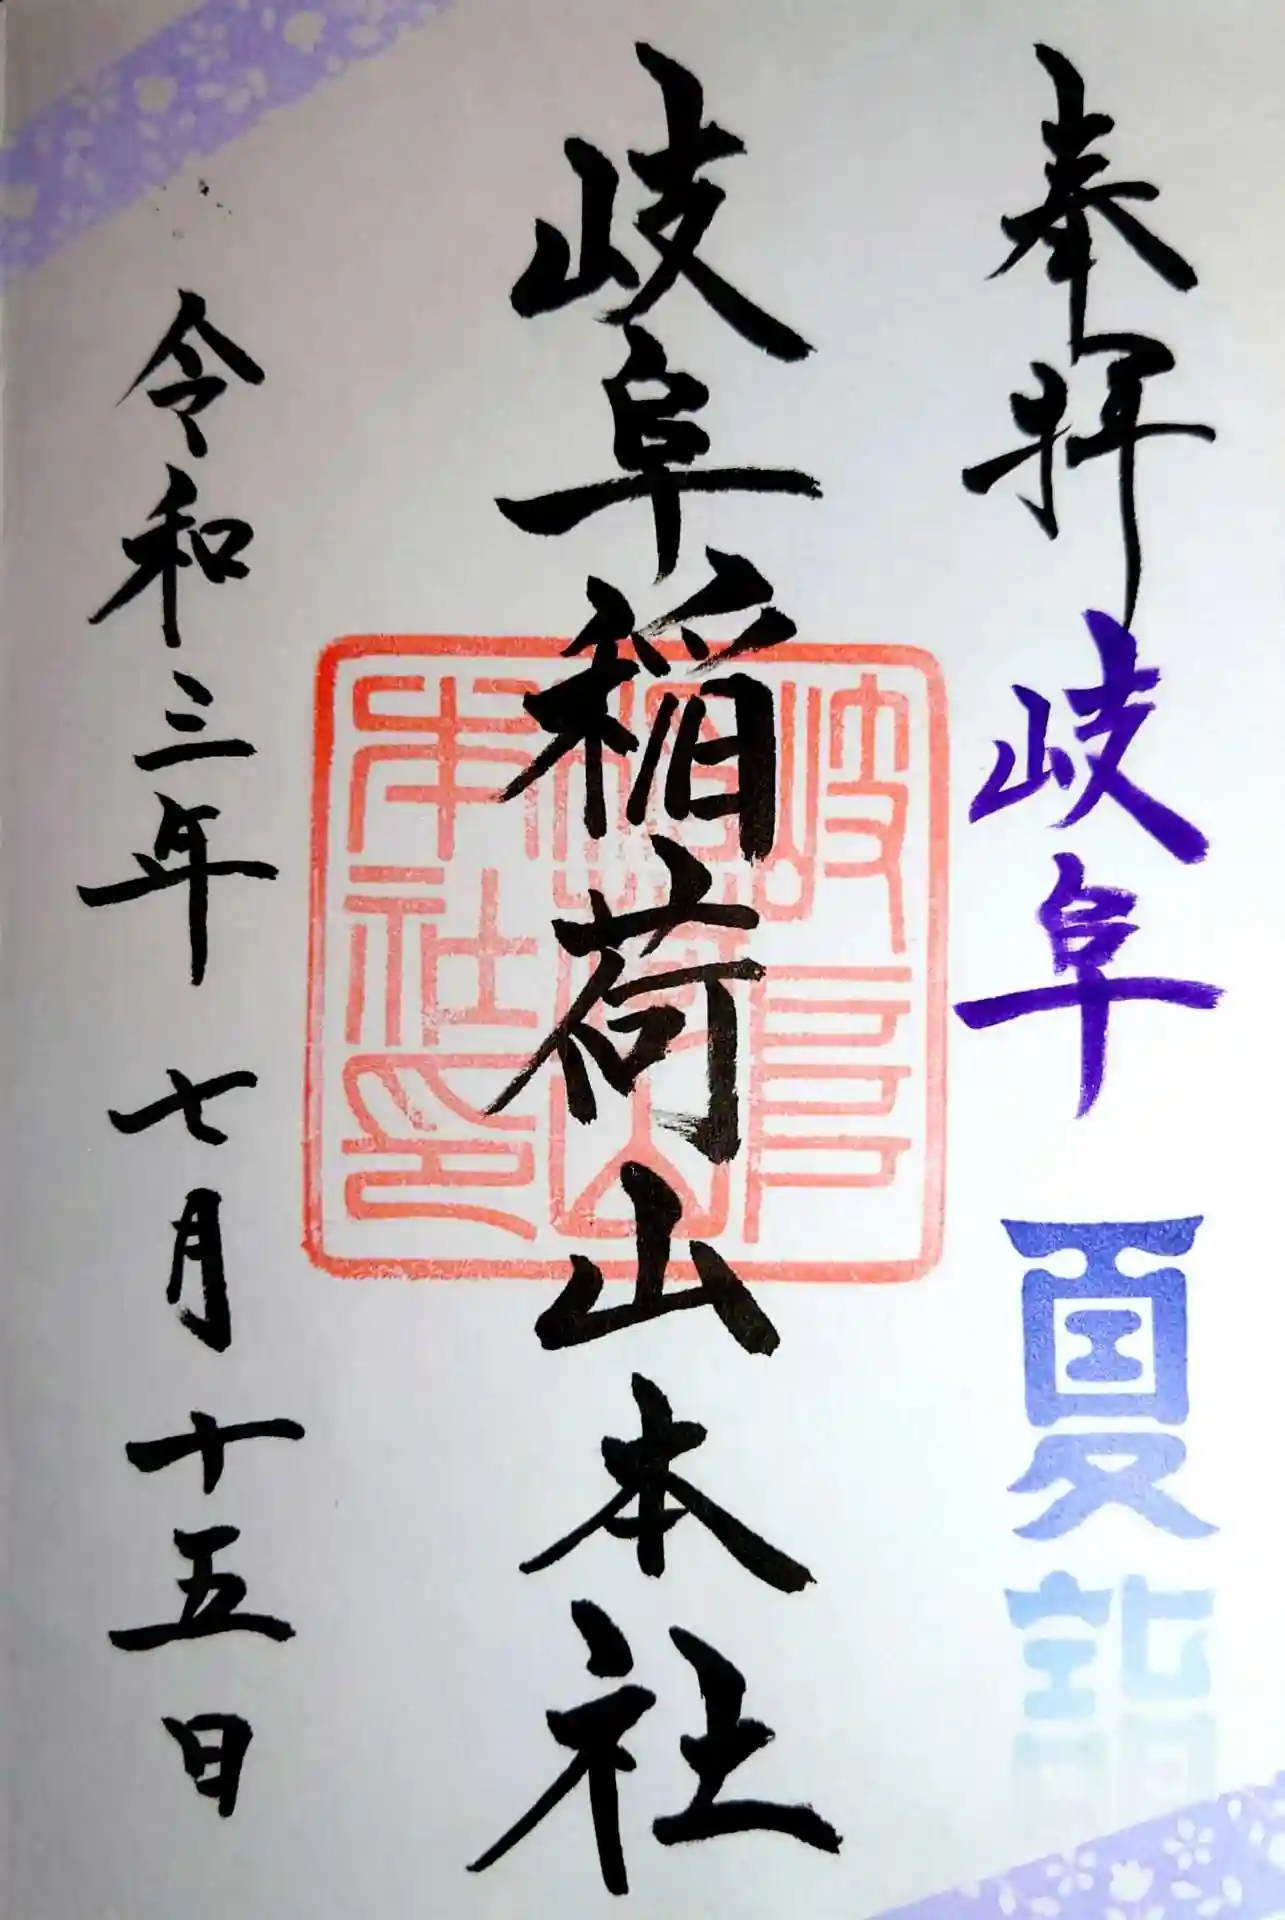 奉拝 岐阜 夏詣
岐阜稲荷山本社
岐阜稲荷山本社印
令和三年 七月十五日